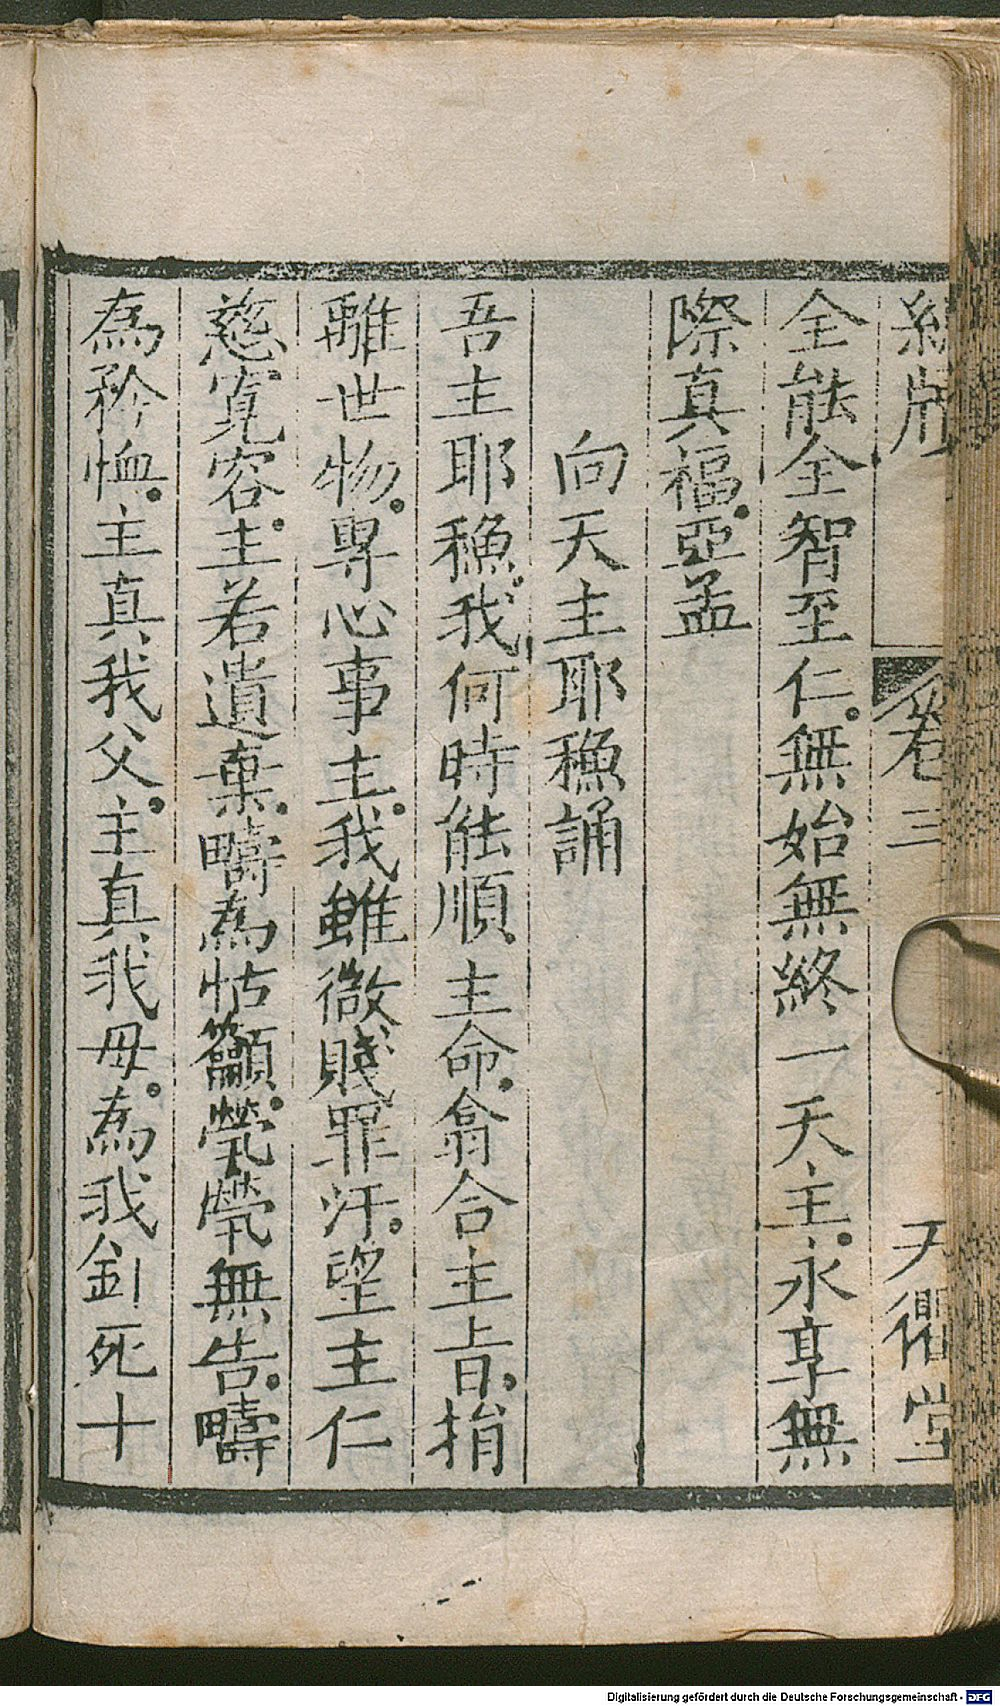 卷三
天衢堂
全能全智至仁。無始無終一天主。永享無
際真福。亞孟
向天主耶穌誦
吾主耶穌。我何時能順主命。翕合主旨。捐
離世物。專心事主。我雖微賤罪汙。望主仁
慈。寬容。主若遺棄。疇為怙籲。煢煢無告。疇
為矜恤。主真我父。主真我母。為我釘死十
Digitalisierung gefördert durch die Deutsche Forschungsgemeinschaft - DFG